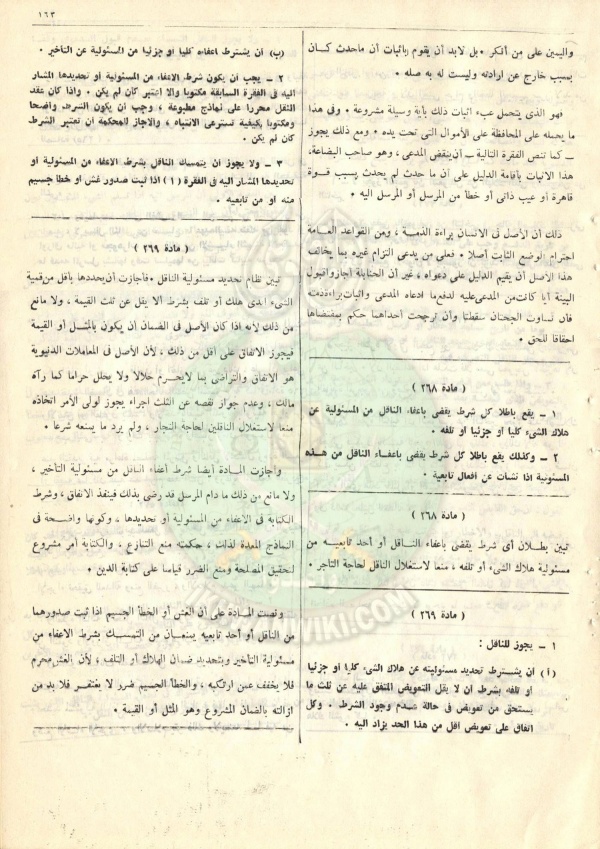 ١٦٣
واليمين على من أنكر • بل لابد أن يقوم باثبات أن ماحدث كان
بسبب خارج عن ارادته وليست له به صله •
فهو الذى يتحمل عبء اثبات ذلك بأية وسيلة مشروعة • وفى هذا
ما يحمله على المحافظة على الأموال التى تحت يده • ومع ذلك يجوز
ــ كما تنص الفقرة التالية ــ أن ينقض المدعى ، وهو صاحب البضاعة،
هذا الاثبات بأقامة الدليل على أن ما حدث لم يحدث بسبب قوة
قاهرة أو عيب ذاتى أو خطأ من المرسل أو المرسل اليه •
ذلك أن الأصل فى الانسان براءة الذمة ، ومن القواعد العامة
احترام الوضع الثابت أصلا • فعلى من يدعى التزام غيره بما يخالف
هذا الأصل أن يقيم الدليل على دعواه ، غير أن الحنابلة أجازوا قبول
البينة أيا كانت من المدعى عليه لدفع ما ادعاه المدعى واثبات براءة ذمته
فان تساوت الحجتان سقطتا وأن ترجحت أحداهما حكم بمقتضاها
احقاقا للحق •
( مادة ٢٦٨ )
١ ــ يقع باطلا كل شرط يقضى باعفاء الناقل من المسئولية عن
هلاك الشىء كليا أو جزئيا أو تلفه •
٢ ــ وكذلك يقع باطلا كل شرط يقضى باعفاء الناقل من هذه
المسئولية اذا نشأت عن أفعال تابعية •
( مادة ٢٦٨ )
تبين بطلان أى شرط يقضى باعفاء الناقل أو أحد تابعيه من
مسئولية هلاك الشىء أو تلفه ، منعا لاستغلال الناقل لحاجة التأجر •
( مادة ٢٦٩ )
١ ــ يجوز للناقل :
( أ ) أن يشترط تحديد مسئوليته عن هلاك الشىء كليا أو جزئيا
أو تلفه بشرط ان لا يقل التعويض المتفق عليه عن ثلث ما
يستحق من تعويض فى حالة عدم وجود الشرط • وكل
اتفاق على تعويض أقل من هذا الحد يزاد اليه •
(ب) أن يشترط اعفاءه كليا أو جزئيا من المسئولية عن التأخير •
٢ ــ يجب أن يكون شرط الاعفاء من المسئولية أو تحديدها المشار
اليه فى الفقرة السابقة مكتوبا والا اعتبر كان لم يكن • واذا كان عقد
النقل محررا على نماذج مطبوعة ، وجب أن يكون الشرط واضحا
ومكتوبا بكيفية تسترعى الانتباه ، والاجاز للمحكمة أن تعتبر الشرط
كان لم يكن •
٣ ــ ولا يجوز أن يتمسك الناقل بشرط الاعفاء من المسئولية أو
تحديدها المشار اليه فى الفقرة ( ١ ) اذا ثبت صدور غش أو خطأ جسيم
منه أو من تابعيه •
( مادة ٢٦٩ )
تبين نظام تحديد مسئولية الناقل • فأجازت أن يحددها بأقل من قمية
الشىء الذى هلك أو تلف بشرط ألا يقل عن ثلث القيمة ، ولا مانع
من ذلك لأنه اذا كان الأصل فى الضمان أن يكون بالمثل أو القيمة
فيجوز الاتفاق على أقل من ذلك ، لأن الأصل فى المعاملات الدنيوية
هو الاتفاق والتراضى بما لايحرم حلالا ولا يحلل حراما كما رآه
مالك ، وعدم جواز نقصه عن الثلث اجراء يجوز لولى الأمر اتخاذه
منعا لاستغلال الناقلين لحاجة التجار ، ولم يرد ما يمنعه شرعا •
وأجازت المادة أيضا شرط أعفاء الناقل من مسئولية التأخير ،
ولا مانع من ذلك ما دام المرسل قد رضى بذلك فينفذ الاتفاق ، وشرط
الكتابة فى الاعفاء من المسئولية أو تحديدها ، وكونها واضحة فى
النماذج المعدة لذلك ، حكمته منع التنازع • والكتابة أمر مشروع
لتحقيق المصلحة ومنع الضرر قياسا على كتابة الدين •
ونصت المادة على أن الغش أو الخطأ الجسيم اذا ثبت صدورهما
من الناقل أو أحد تابعيه يمنعان من التمسك بشرط الاعفاء من
مسئولية التأخير وبتحديد ضمان الهلاك أو التلف ، لأن الغش محرم
فلا يخفف عمن ارتكبه ، والخطأ الجسيم ضرر لا يغتفر فلا بد من
ازالته بالضمان المشروع وهو المثل أو القيمة •